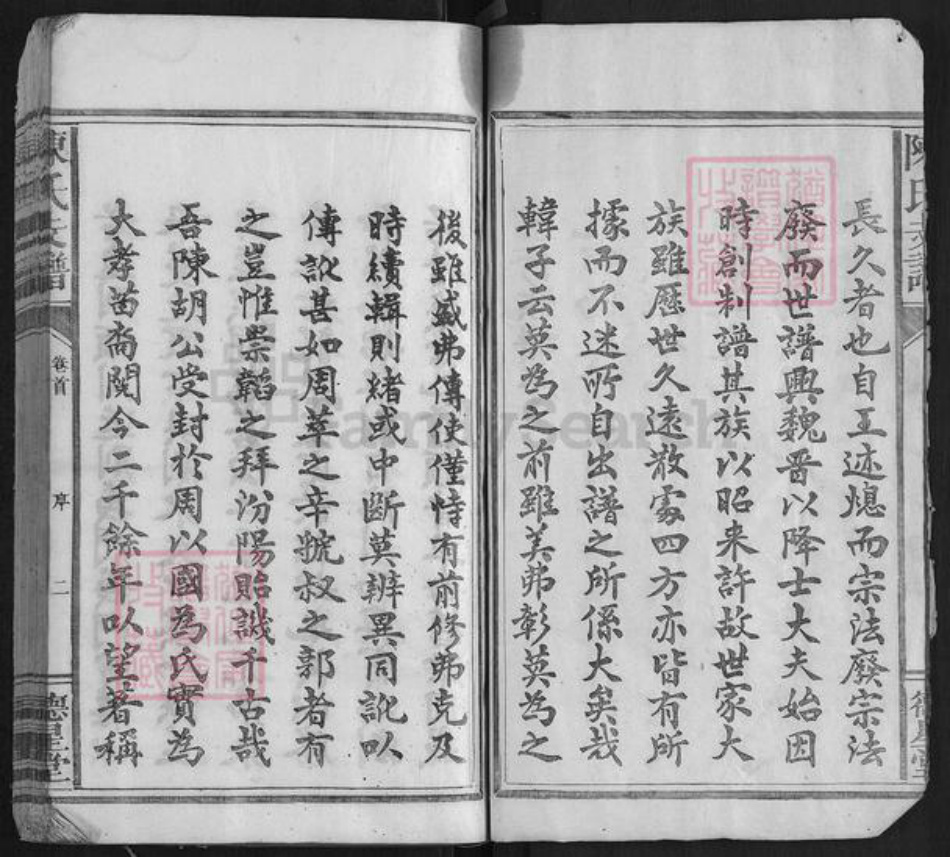 長久者也自王迹熄而宗法廢宗法
廢而世譜興魏晋以降士大夫始因
時創制譜其族以昭来許故世家大
族雖歷世久遠散處四方亦皆有所
據而不迷所自出譜之所係大矣哉
韓子云莫為之前雖美弗彰莫為之
後雖盛弗傳使僅恃有前修弗克及
時續輯則緒或中斷莫辨異同訛以
傳訛甚如周萃之辛虢叔之郭者有
之豈惟崇韜之拜汾陽貽譏千古哉
吾陳胡公受封於周以國為氏實為
大孝苗裔閱今二千餘年以望著稱
陳氏支譜
卷首
序
二
德星堂
FamilySearch